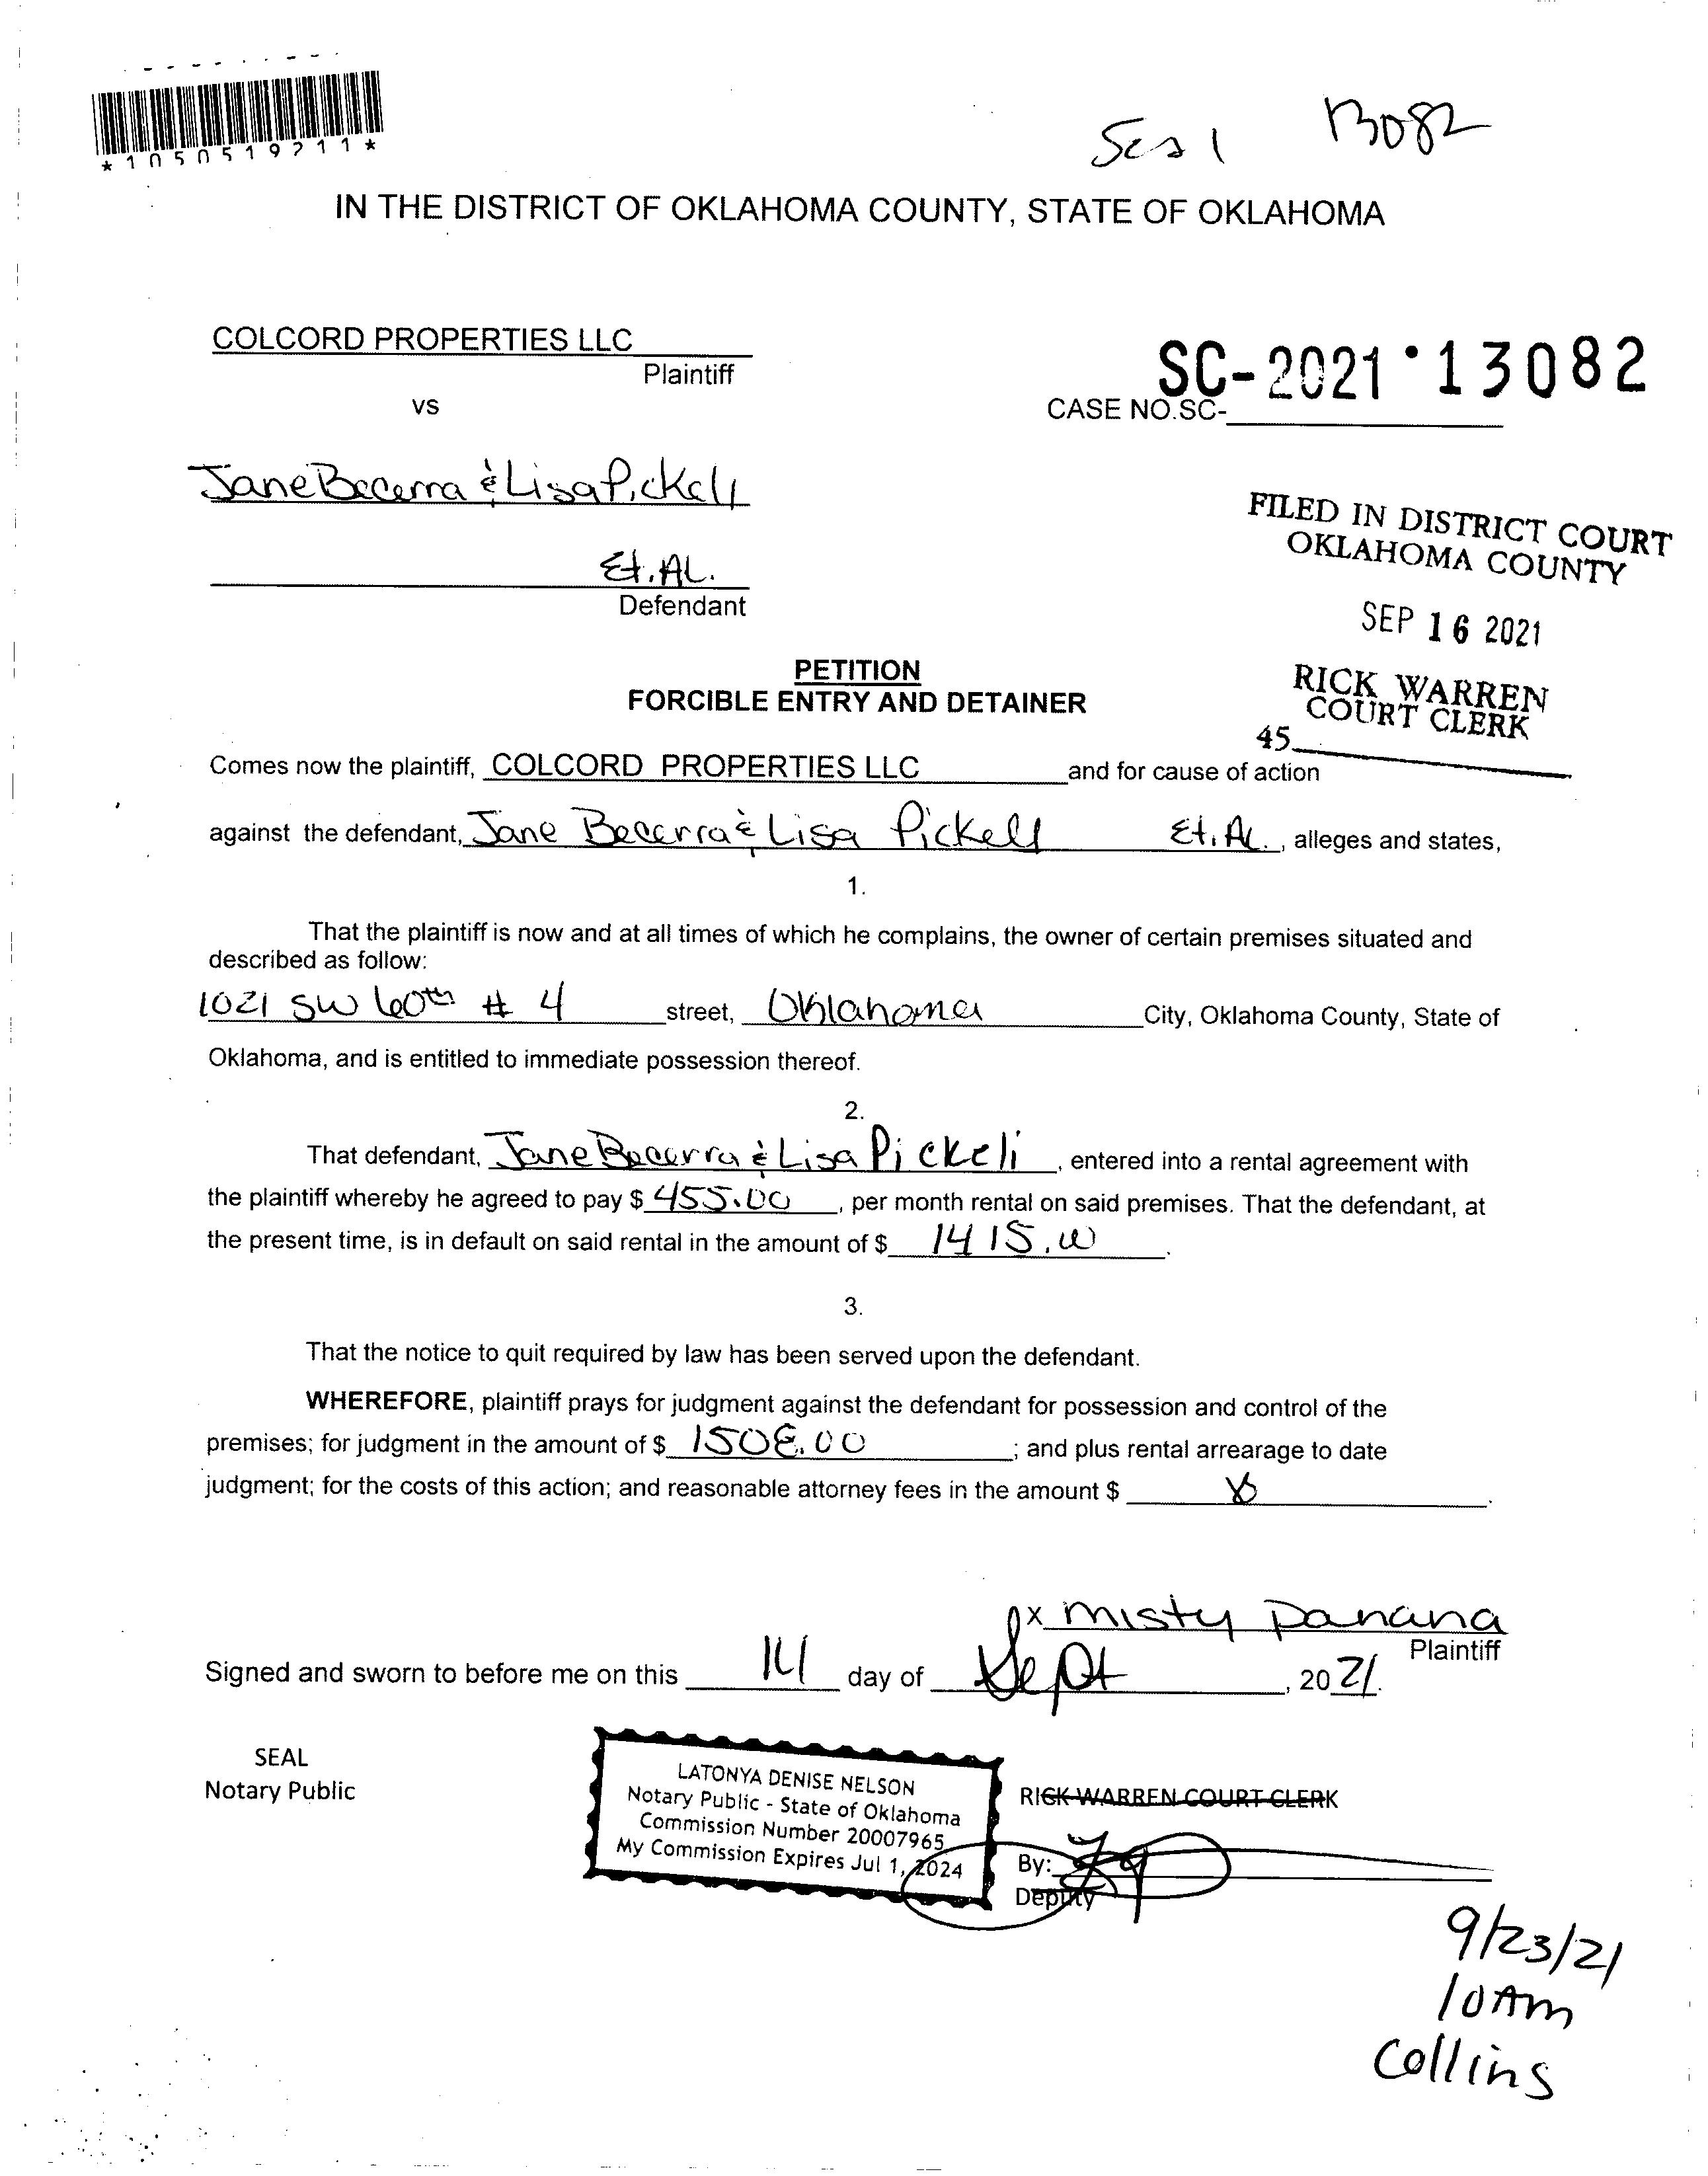 *1050519211*
13082
IN THE DISTRICT OF OKLAHOMA COUNTY, STATE OF OKLAHOMA
COLCORD PROPERTIES LLC
Plaintiff
vs
SC-2021 • 13082
CASE NO.SC-
Jane Becerra & Lisa Pickell
Et. AL.
Defendant
FILED IN DISTRICT COURT
OKLAHOMA COUNTY
SEP 16 2021
RICK WARREN
COURT CLERK
45
PETITION
FORCIBLE ENTRY AND DETAINER
Comes now the plaintiff, COLCORD PROPERTIES LLC and for cause of action
against the defendant, Jane Becerra & Lisa Pickell Et. AL., alleges and states,
1.
That the plaintiff is now and at all times of which he complains, the owner of certain premises situated and
described as follow:
1021 SW 60th # 4 street, Oklahoma City, Oklahoma County, State of
Oklahoma, and is entitled to immediate possession thereof.
2.
That defendant, Jane Becerra & Lisa Pickell, entered into a rental agreement with
the plaintiff whereby he agreed to pay $ 455.00, per month rental on said premises. That the defendant, at
the present time, is in default on said rental in the amount of $ 1415.00.
3.
That the notice to quit required by law has been served upon the defendant.
WHEREFORE, plaintiff prays for judgment against the defendant for possession and control of the
premises; for judgment in the amount of $ ; and plus rental arrearage to date
judgment; for the costs of this action; and reasonable attorney fees in the amount $ .
x Misty Panana
Plaintiff
Signed and sworn to before me on this 14 day of Sept, 2021.
SEAL
Notary Public
LATONYA DENISE NELSON
Notary Public - State of Oklahoma
Commission Number 20007965
My Commission Expires Jul 1, 2024
RICK WARREN COURT CLERK
By:
Deputy
9/23/21
10 AM
Collins